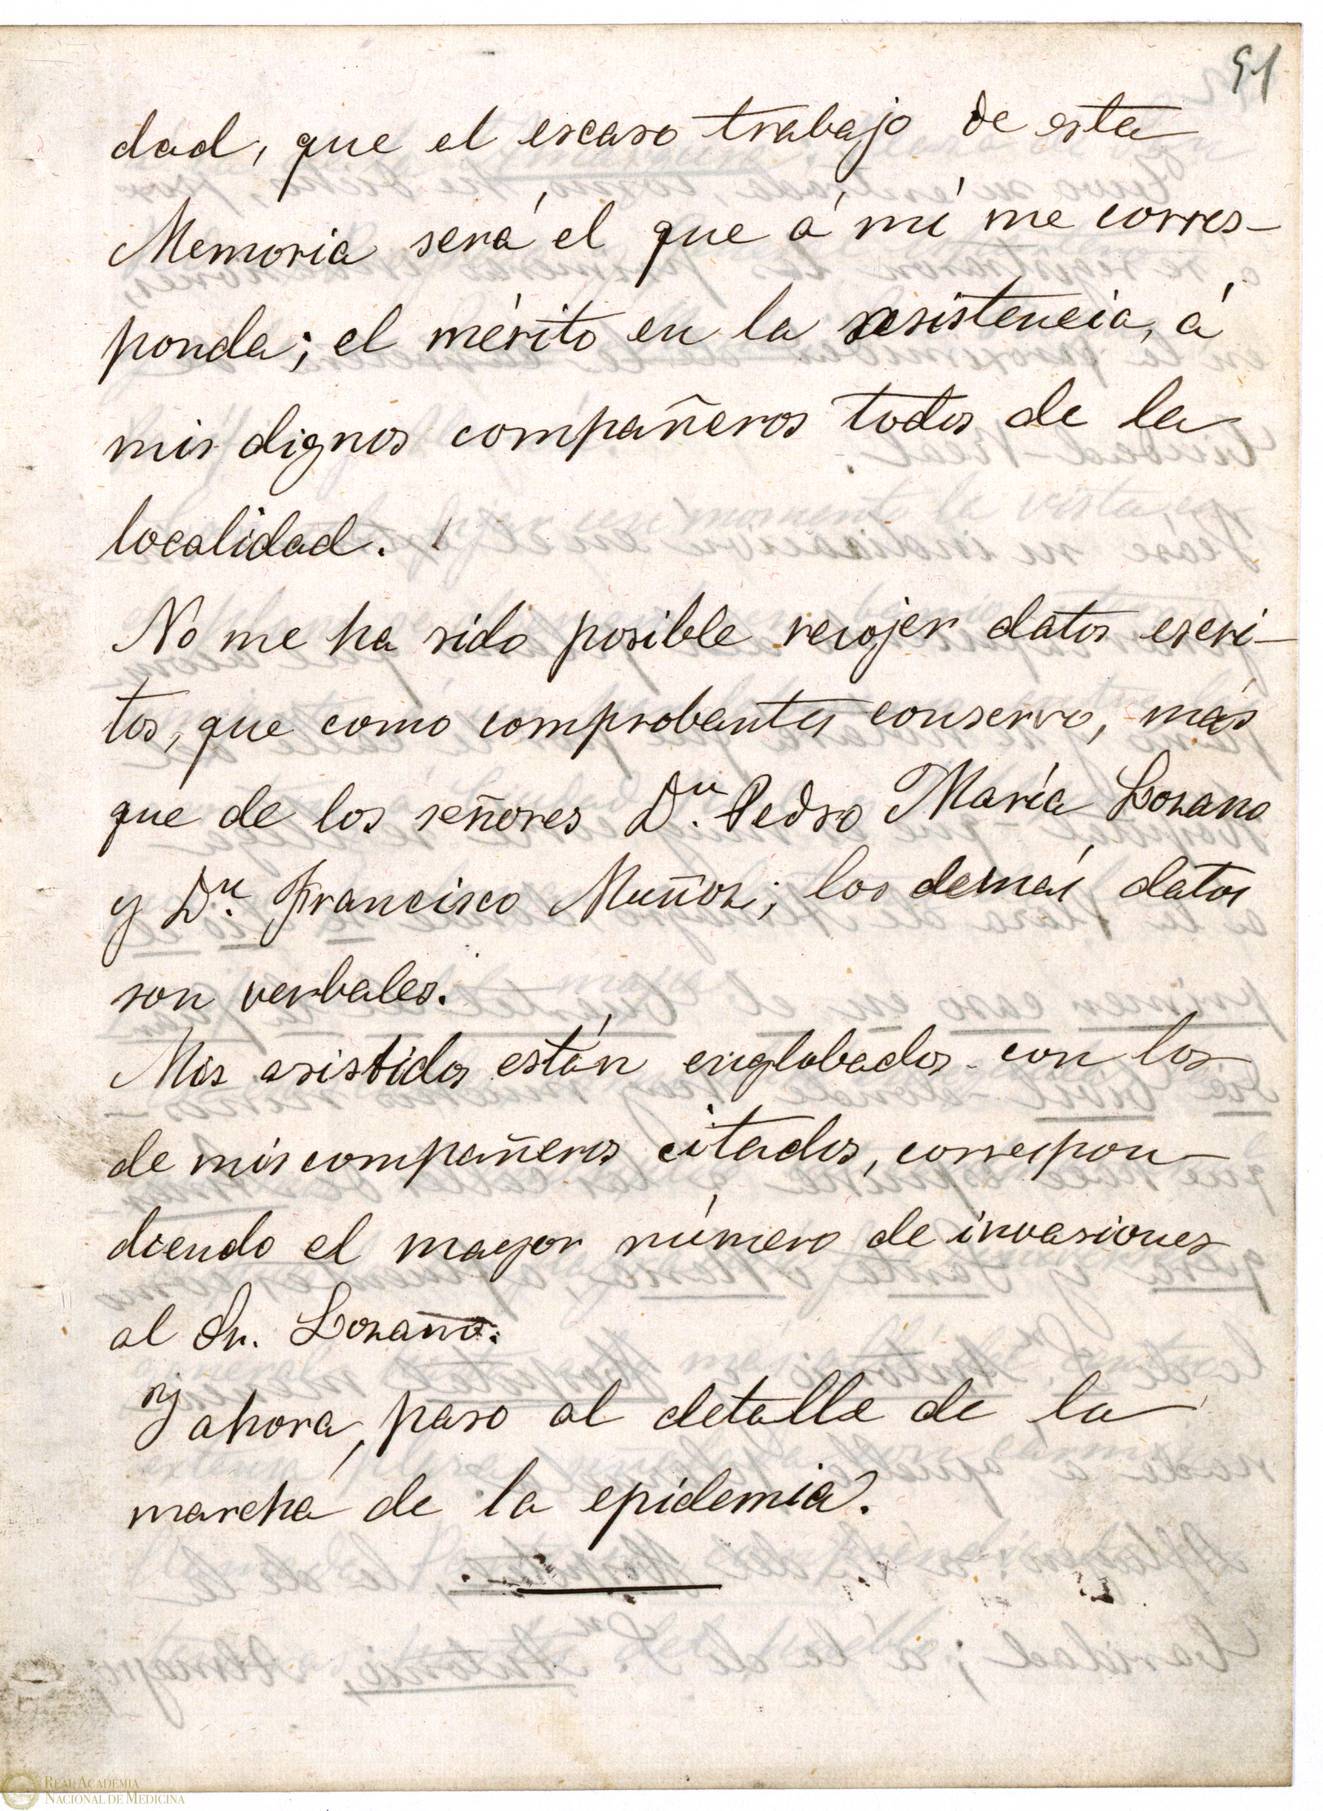 91
dad, que el escaso trabajo de esta
Memoria será el que á mí me corres-
ponda; el mérito en la asistencia, á
mis dignos compañeros todos de la
localidad.
No me ha sido posible recojer datos escri-
tos, que como comprobantes conservo, más
que de los señores Dn. Pedro María Lozano
y Dn. Francisco Muñoz; los demás datos
son verbales.
Mis asistidos están englobados con los
de mis compañeros citados, correspon-
diendo el mayor número de invasiones
al Sr. Lozano.
Y ahora, paso al detalle de la
marcha de la epidemia.
REAL ACADEMIA
NACIONAL DE MEDICINA